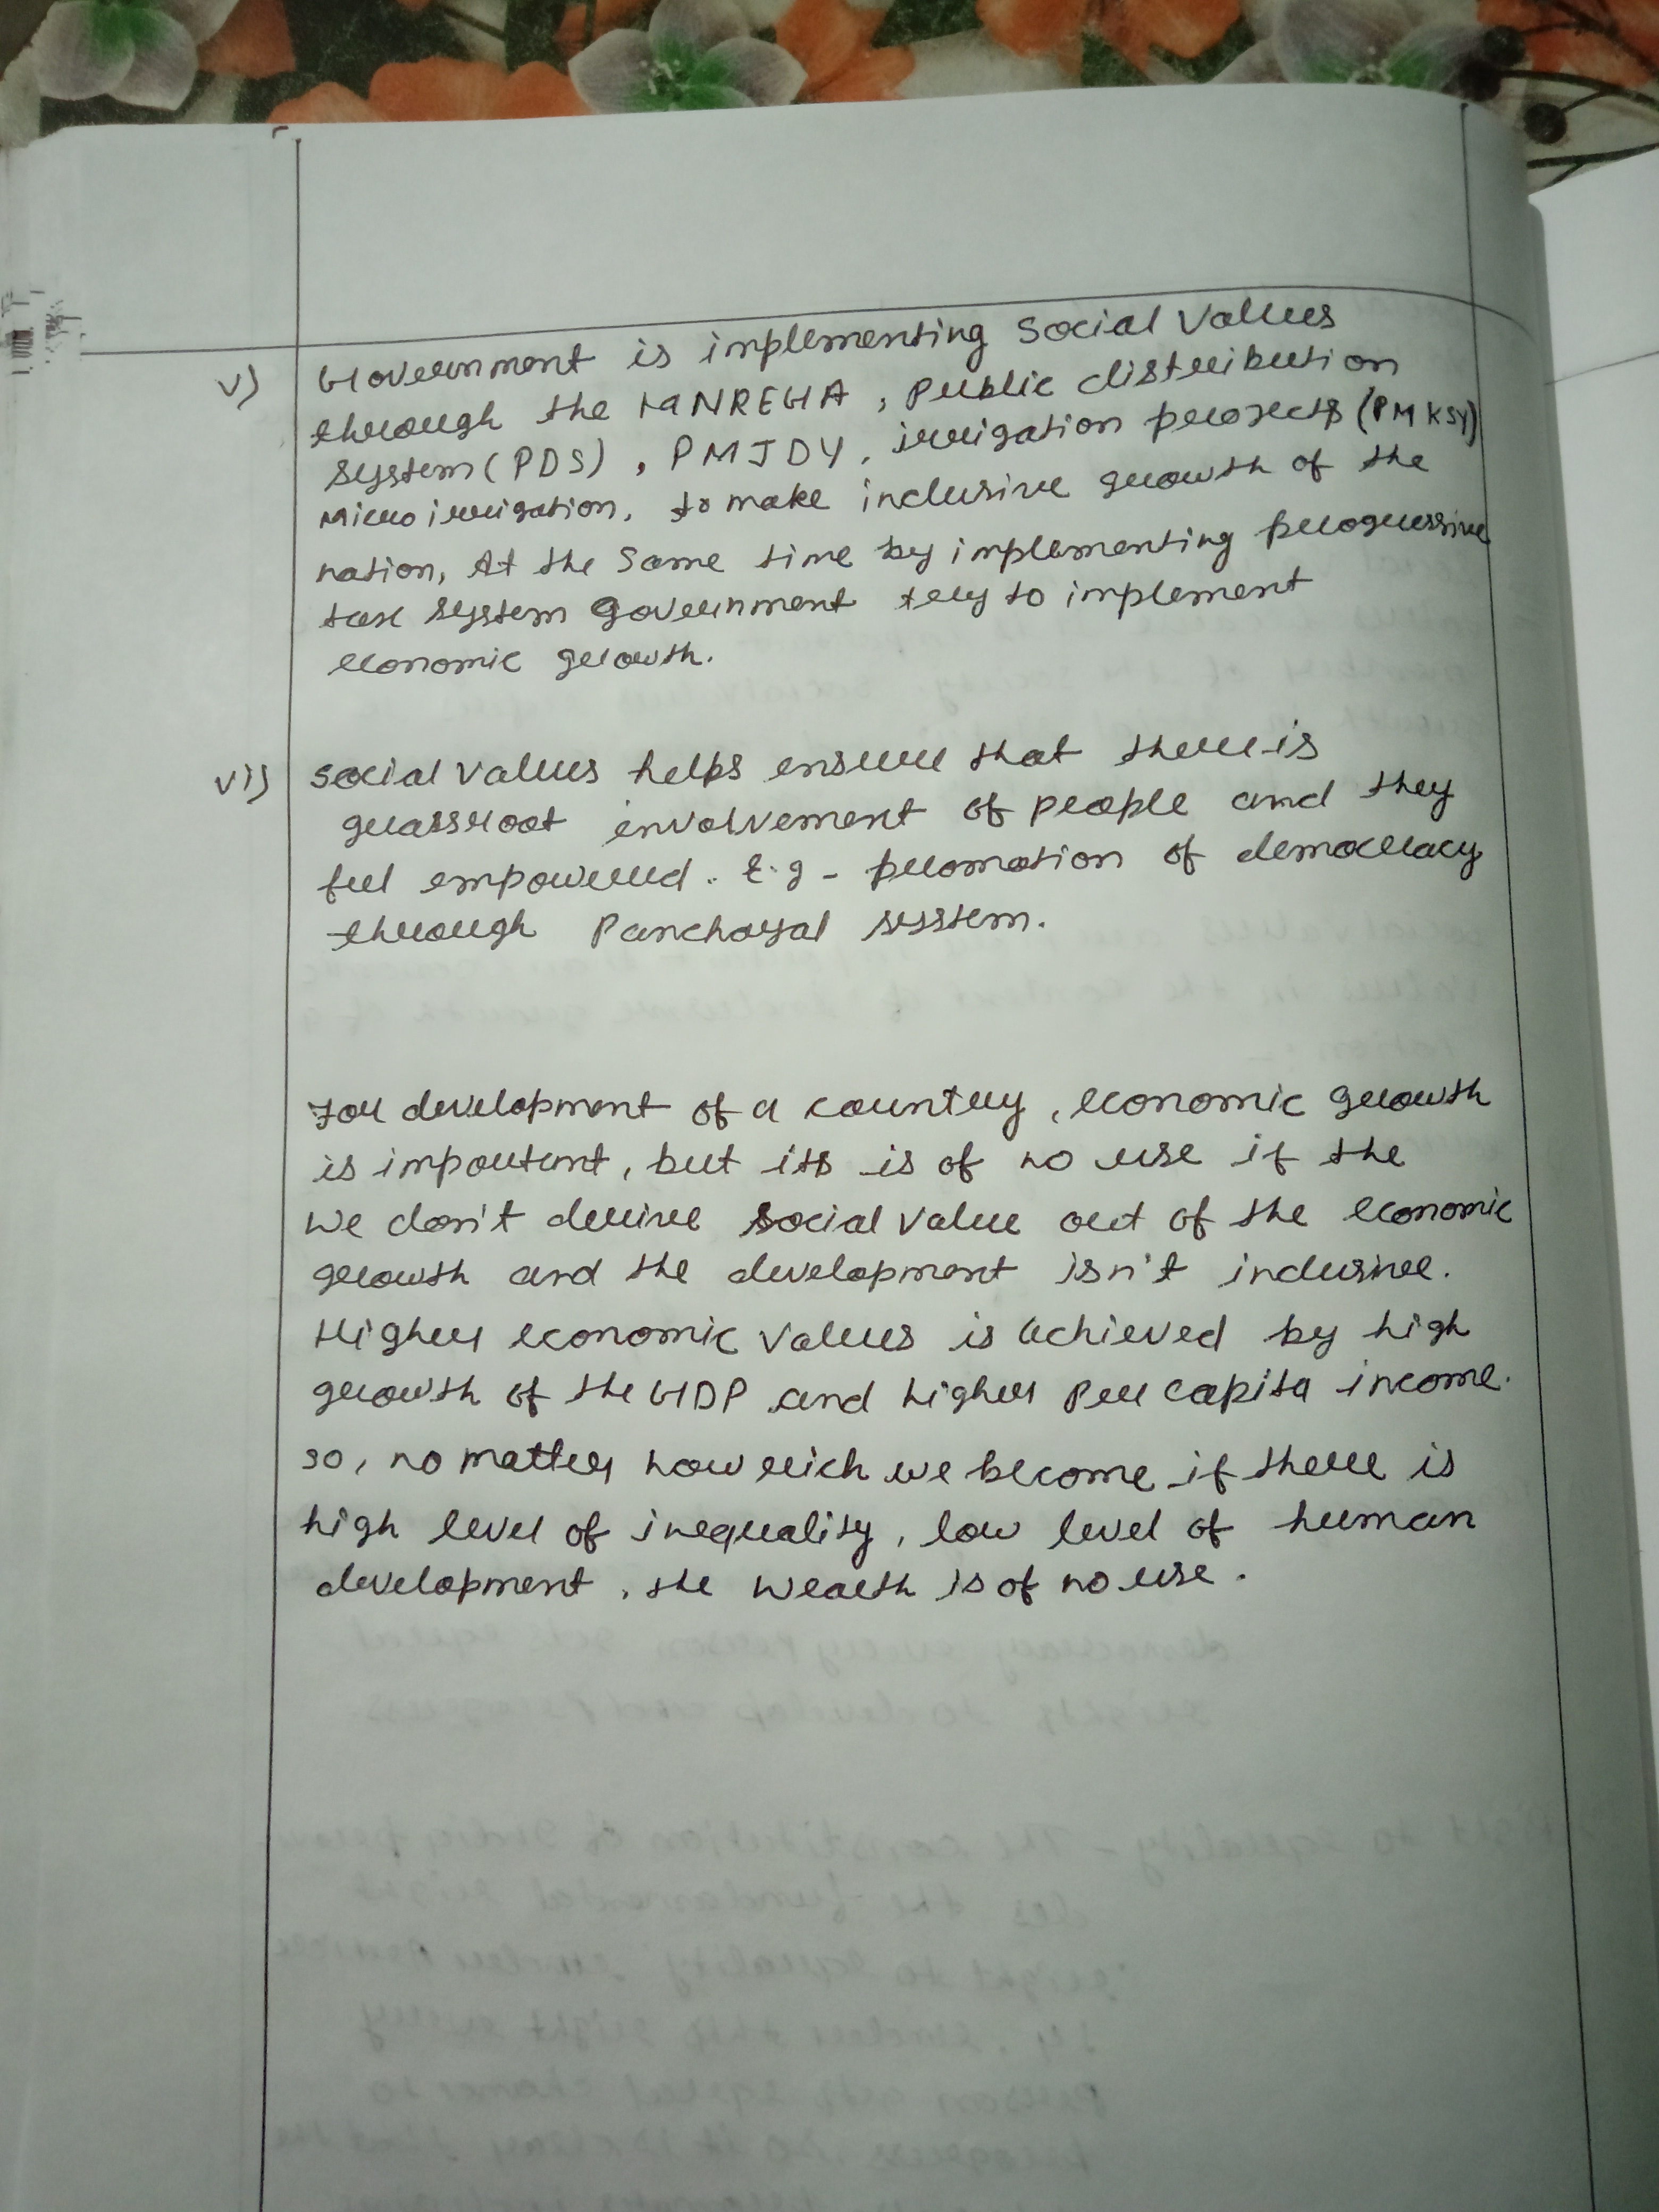 v) Government is implementing Social Values
through the MNREGA, Public distribution
System (PDS), PMJDY, irrigation projects (PMKSY)
Micro irrigation, to make inclusive growth of the
nation, At the Same time by implementing progressive
tax System Government try to implement
economic growth.
vi) Social values helps ensure that there is
grassroot involvement of people and they
feel empowered. E.g - promotion of democracy
through Panchayal system.
For development of a country, economic growth
is important, but its is of no use if the
we don't derive social value out of the economic
growth and the development isn't inclusive.
Higher economic values is achieved by high
growth of the GDP and higher Per capita income.
so, no matter how rich we become if there is
high level of inequality, low level of human
development, the wealth is of no use.